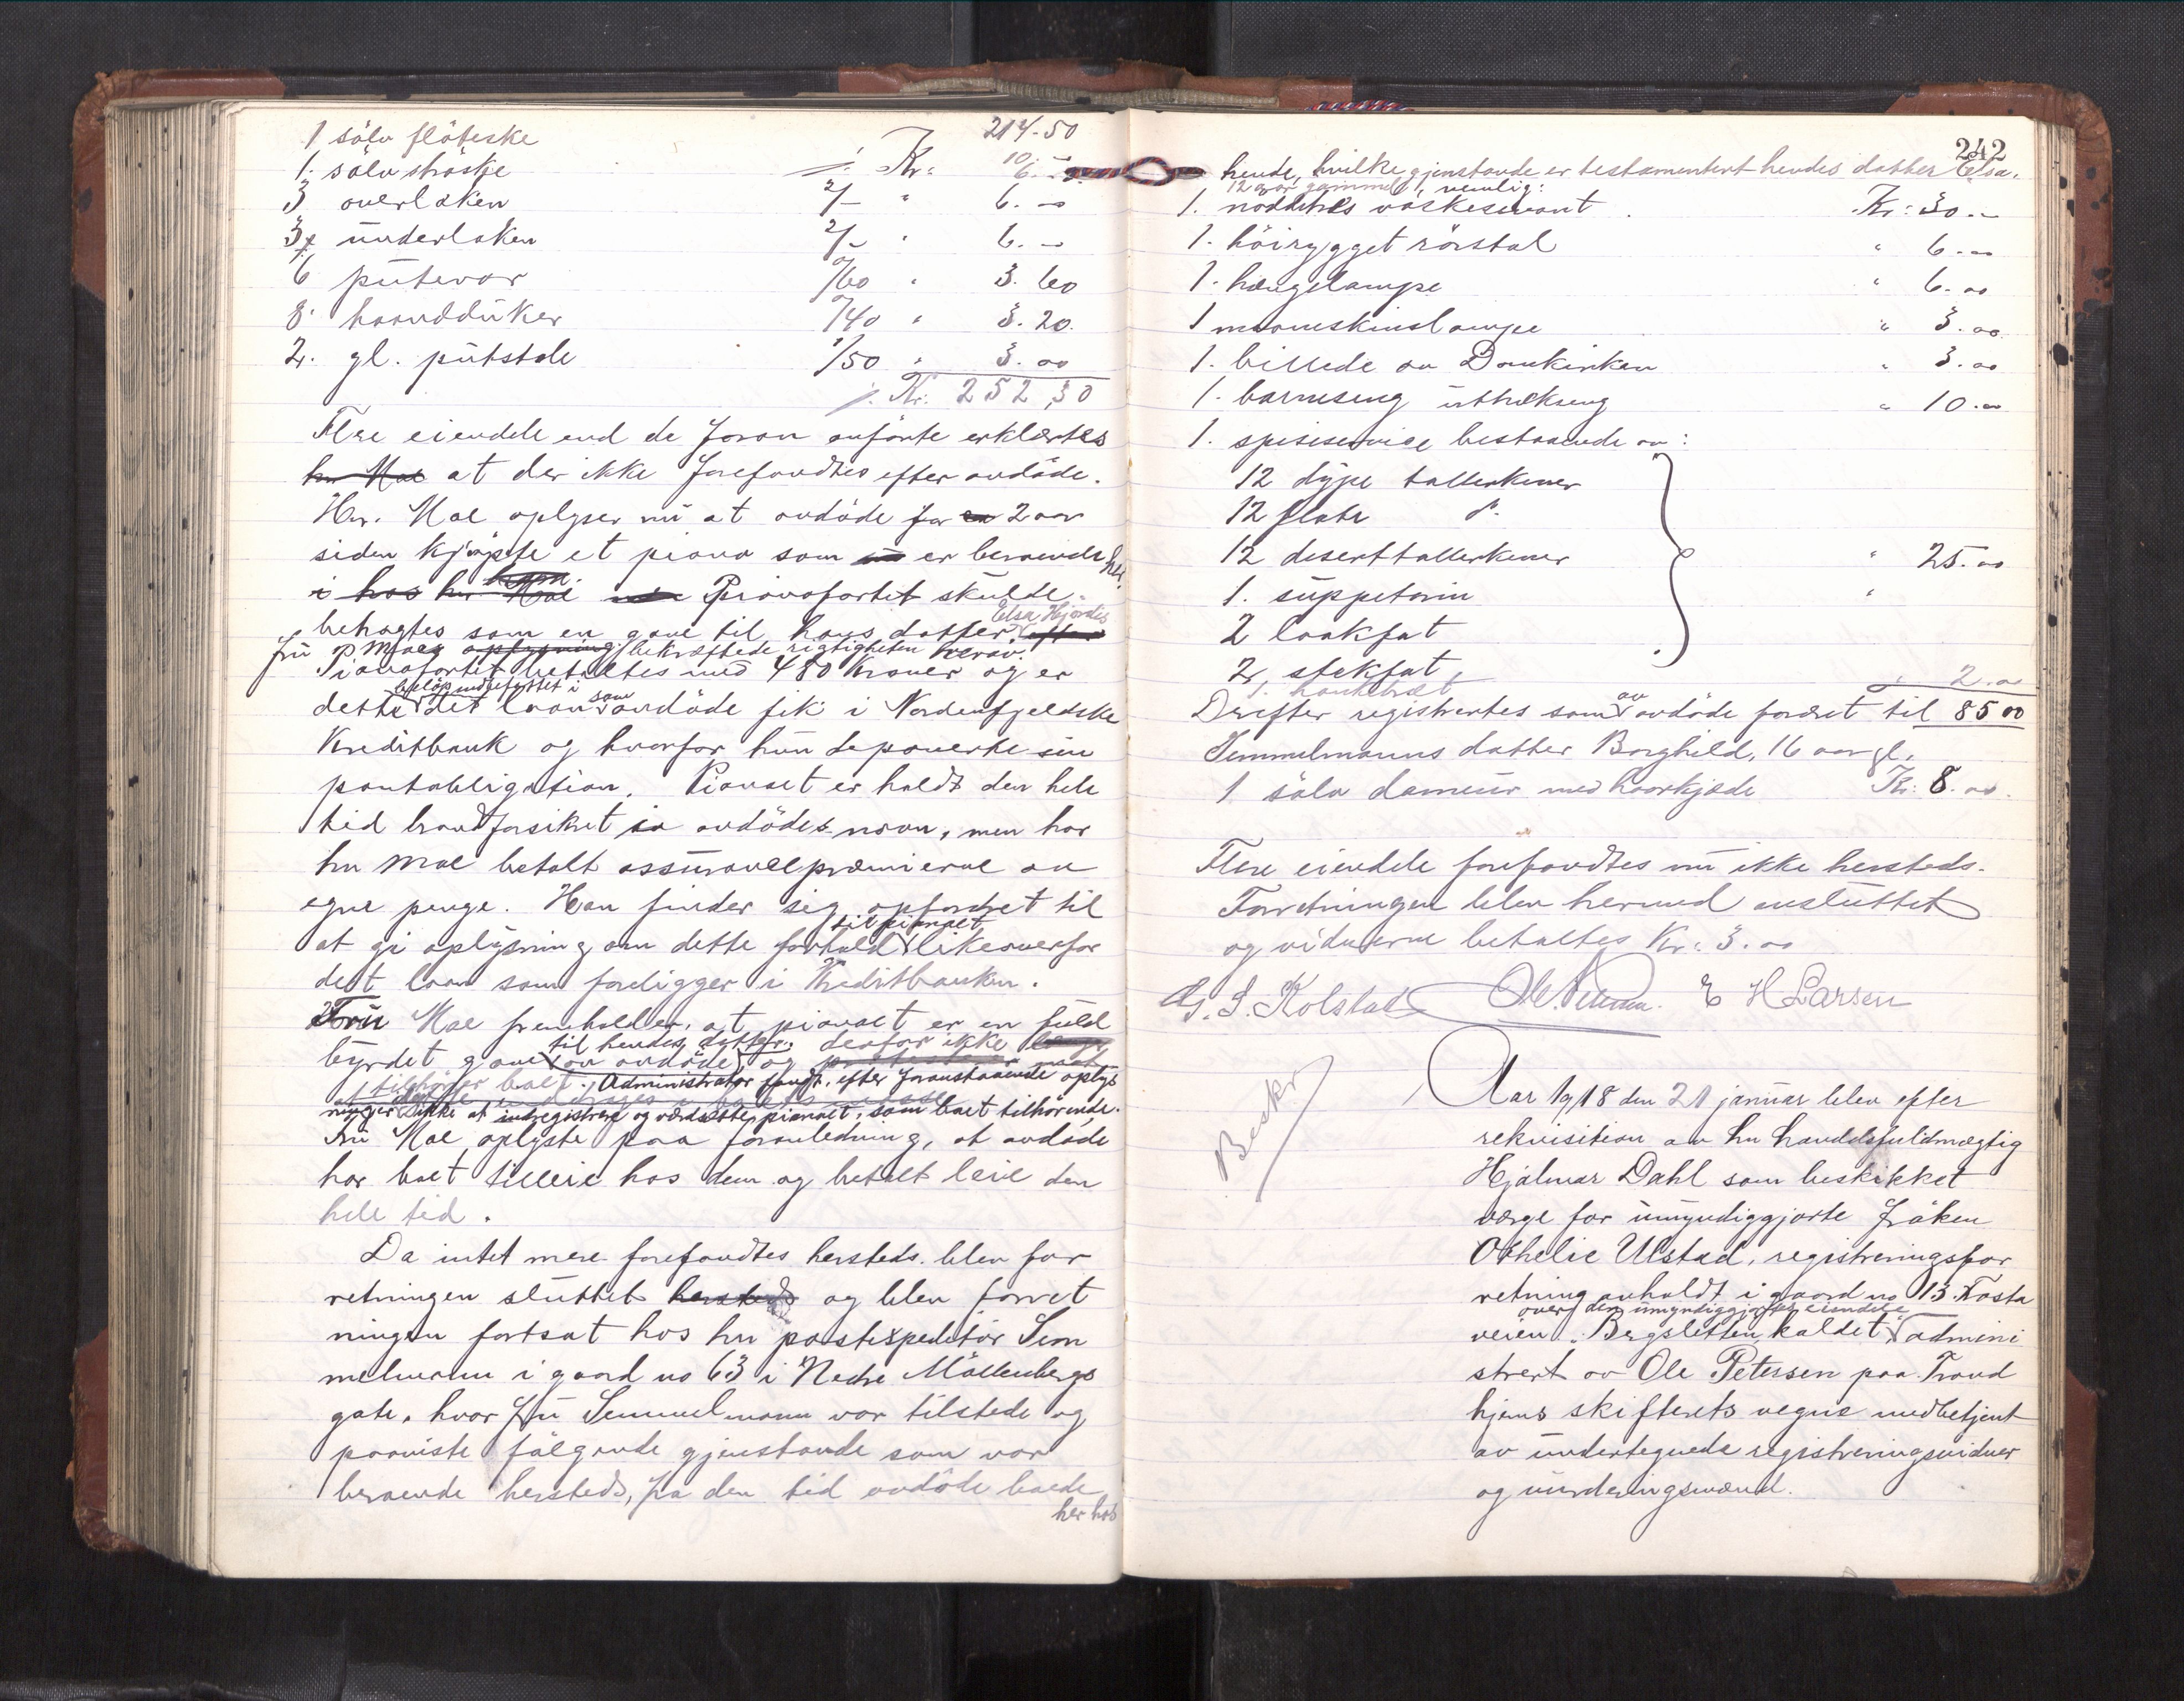 214-50
1 sölv flöteske
1. sölv ströske ·/. Kr: 10.-
3 overlaken 2/- " 6.-
3 underlaken 2/- " 6.-
6 putevar /60 " 3.60
8 haandduker /40 " 3.20
2. gl. putstole 1/50 " 3.00
·/. Kr. 252,30
Flere eiendele end de foran anførte erklærtes
hr Moe at der ikke forefandtes efter avdöde.
Hr. Moe oplyser nu at avdöde for en 2 aar
siden kjöpte et piano som er beroende her
i hos hr Moe Pianofortet skulde
betragtes som en gave til hans datter Elsa Hjördis
fru Moe bekræftede rigtigheten herav.
Pianofortet betaltes med 480 kroner og er
beløp indbefattet i
dette det laan som avdöde fik i Nordenfjeldske
Kreditbank og hvorfor hun deponerte sin
pantobligation. Pianoet er holdt den hele
tid brandforsikret i avdödes navn, men har
hr Moe betalt assuransepræmierne av
egne penge. Han finder sig opfordret til
at gi oplysning om dette forhold til pianoet likeoverfor
det laan som foreligger i Kreditbanken.
Fru Moe fremholder, at pianoet er en fuld
byrdet gave til hendes datter av avdöde og derfor ikke
tilhörer boet. Administrator fandt, efter foranstaaende oplys
ninger ikke at indregistrere og værdsætte pianoet, som boet tilhörende.
Fru Moe oplyste paa foranledning, at avdöde
har boet tilleie hos dem og betalt leie den
hele tid.
Da intet mere forefandtes hersteds blev for
retningen sluttet hersteds og blev forret
ningen fortsat hos hr postexpeditör Sem
melmann i gaard no 63 i Nedre Möllenbergs
gate, hvor fru Semmelmann var tilstede og
paaviste fölgende gjenstande som var
beroende hersteds, fra den tid avdöde boede
her hos
242
hende, hvilke gjenstande er testamentert hendes datter Elsa,
12 aar gammel, nemlig:
1. nöddetræs vaskeservant Kr: 30.-
1. höirygget rörstol " 6.-
1. hængelampe " 6.00
1 maaneskinslampe " 3.00
1. billede av Domkirken " 3.00
1. barneseng uttrækseng " 10.00
1. spiseservice bestaaende av:
12 dype tallerkener
12 flate d°
12 deserttallerkener " 25.00
1. suppeterin "
2 laakfat
2, stekfat
2.00
Derefter registrertes som av avdöde foræret til 85 00
Semmelmanns datter Borghild, 16 aar gl.
1 sölv dameur med haarkjæde Kr: 8.00
Flere eiendele forefandtes nu ikke hersteds.
Forretningen blev hermed avsluttet
og vidnerne betaltes Kr: 3.00
G. S. Kolstad E H Larsen
Beskr
Aar 1918 den 21 januar blev efter
rekvisition av hr handelsfuldmægtig
Hjalmar Dahl som beskikket
værge for umyndiggjorte fröken
Othelie Ulstad, registreringsfor
retning avholdt i gaard no 13 Tosta
over den umyndiggjortes eiendele
veien, Bergsletten kaldet admini
strert av Ole Petersen paa Trond
hjems skifterets vegne medbetjent
av undertegnede registreringsvidner
og vurderingsmænd.